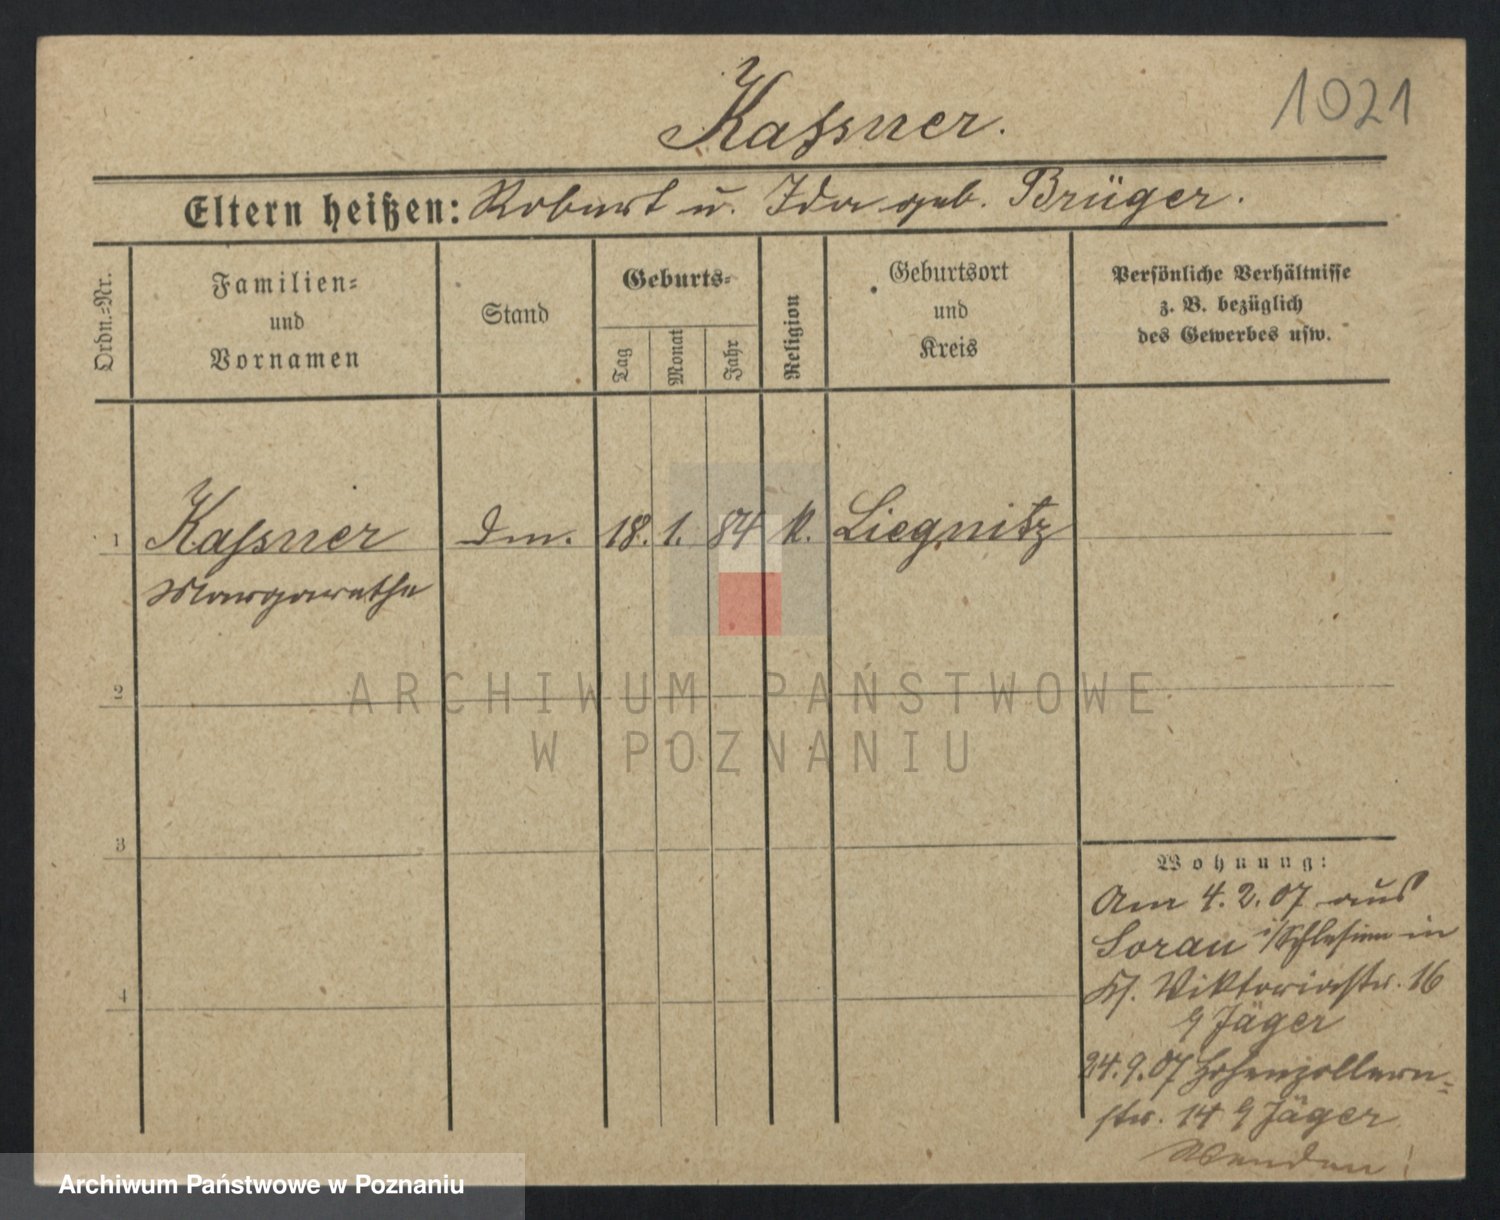 1021
Kassner.
Eltern heißen: Robert u. Ida geb. Brüger.
Ordn.-Nr.
Familien- und Vornamen
Stand
Geburts-
Tag
Monat
Jahr
Religion
Geburtsort und Kreis
Persönliche Verhältnisse
z. B. bezüglich
des Gewerbes usw.
1 Kassner Dm. 18. 1. 84 k. Liegnitz
Margarethe
2
3
4
Wohnung:
Am 4.2.07 aus
Sorau i/Schlesien in
Viktoriastr. 16
Jäger
24.9.07 Hohenzollern-
str. 14 Jäger
Wenden!
ARCHIWUM PAŃSTWOWE
W POZNANIU
Archiwum Państwowe w Poznaniu